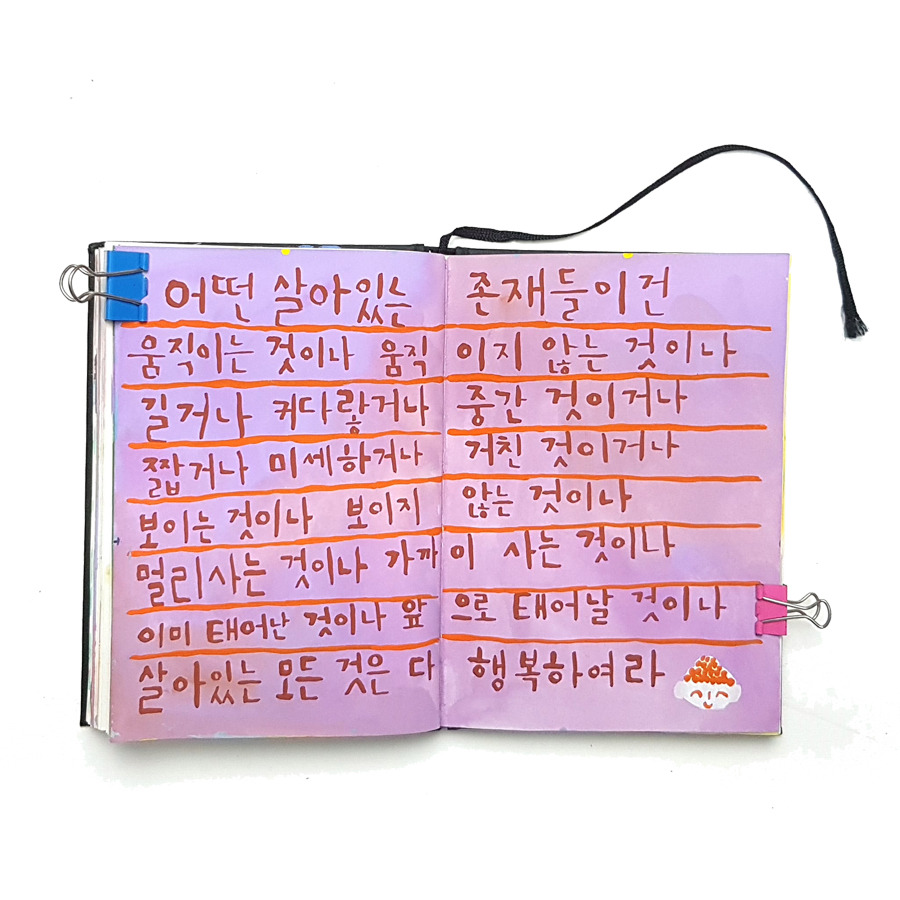 어떤 살아있는 존재들이건
움직이는 것이나 움직이지 않는 것이나
길거나 커다랗거나 중간 것이거나
짧거나 미세하거나 거친 것이거나
보이는 것이나 보이지 않는 것이나
멀리사는 것이나 가까이 사는 것이나
이미 태어난 것이나 앞으로 태어날 것이나
살아있는 모든 것은 다 행복하여라